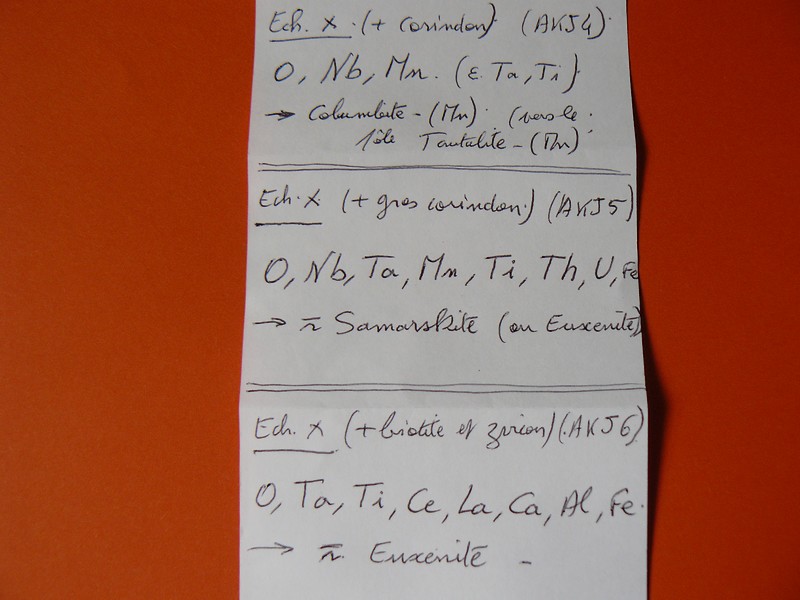 Ech. X. (+ corindon). (AKJ4).
O, Nb, Mn. (ε. Ta, Ti).
→ Columbite-(Mn). (vers le
pôle Tantalite-(Mn)
Ech. X (+ gros corindon.) (AKJ5)
O, Nb, Ta, Mn, Ti, Th, U, Fe
→ Samarskite (ou Euxenite)
Ech. X (+ biotite et zircon) (AKJ6)
O, Ta, Ti, Ce, La, Ca, Al, Fe.
→ Euxenite -